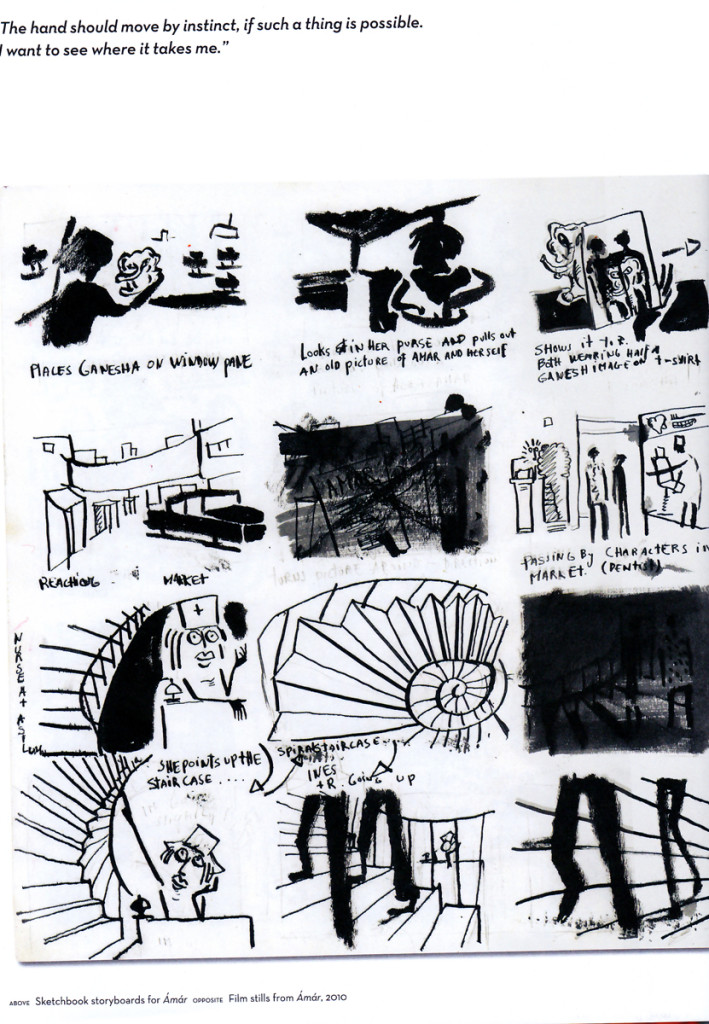 The hand should move by instinct, if such a thing is possible.
I want to see where it takes me.”
PLACES GANESHA ON WINDOW PANE
Looks IN HER PURSE AND pulls out
AN old picture OF AMAR AND HERSELF
SHOWS it to R.
BOTH WEARING HALF A
GANESH IMAGE ON T-SHIRT
REACHING MARKET
AMAR
PASSING BY CHARACTERS IN
MARKET. (DENTIST)
NURSE AT ASYLUM
SHE POINTS UP THE
STAIRCASE ....
SPIRAL STAIRCASE ....
INES
+R. GOING UP
ABOVE Sketchbook storyboards for Ámár OPPOSITE Film stills from Ámár, 2010